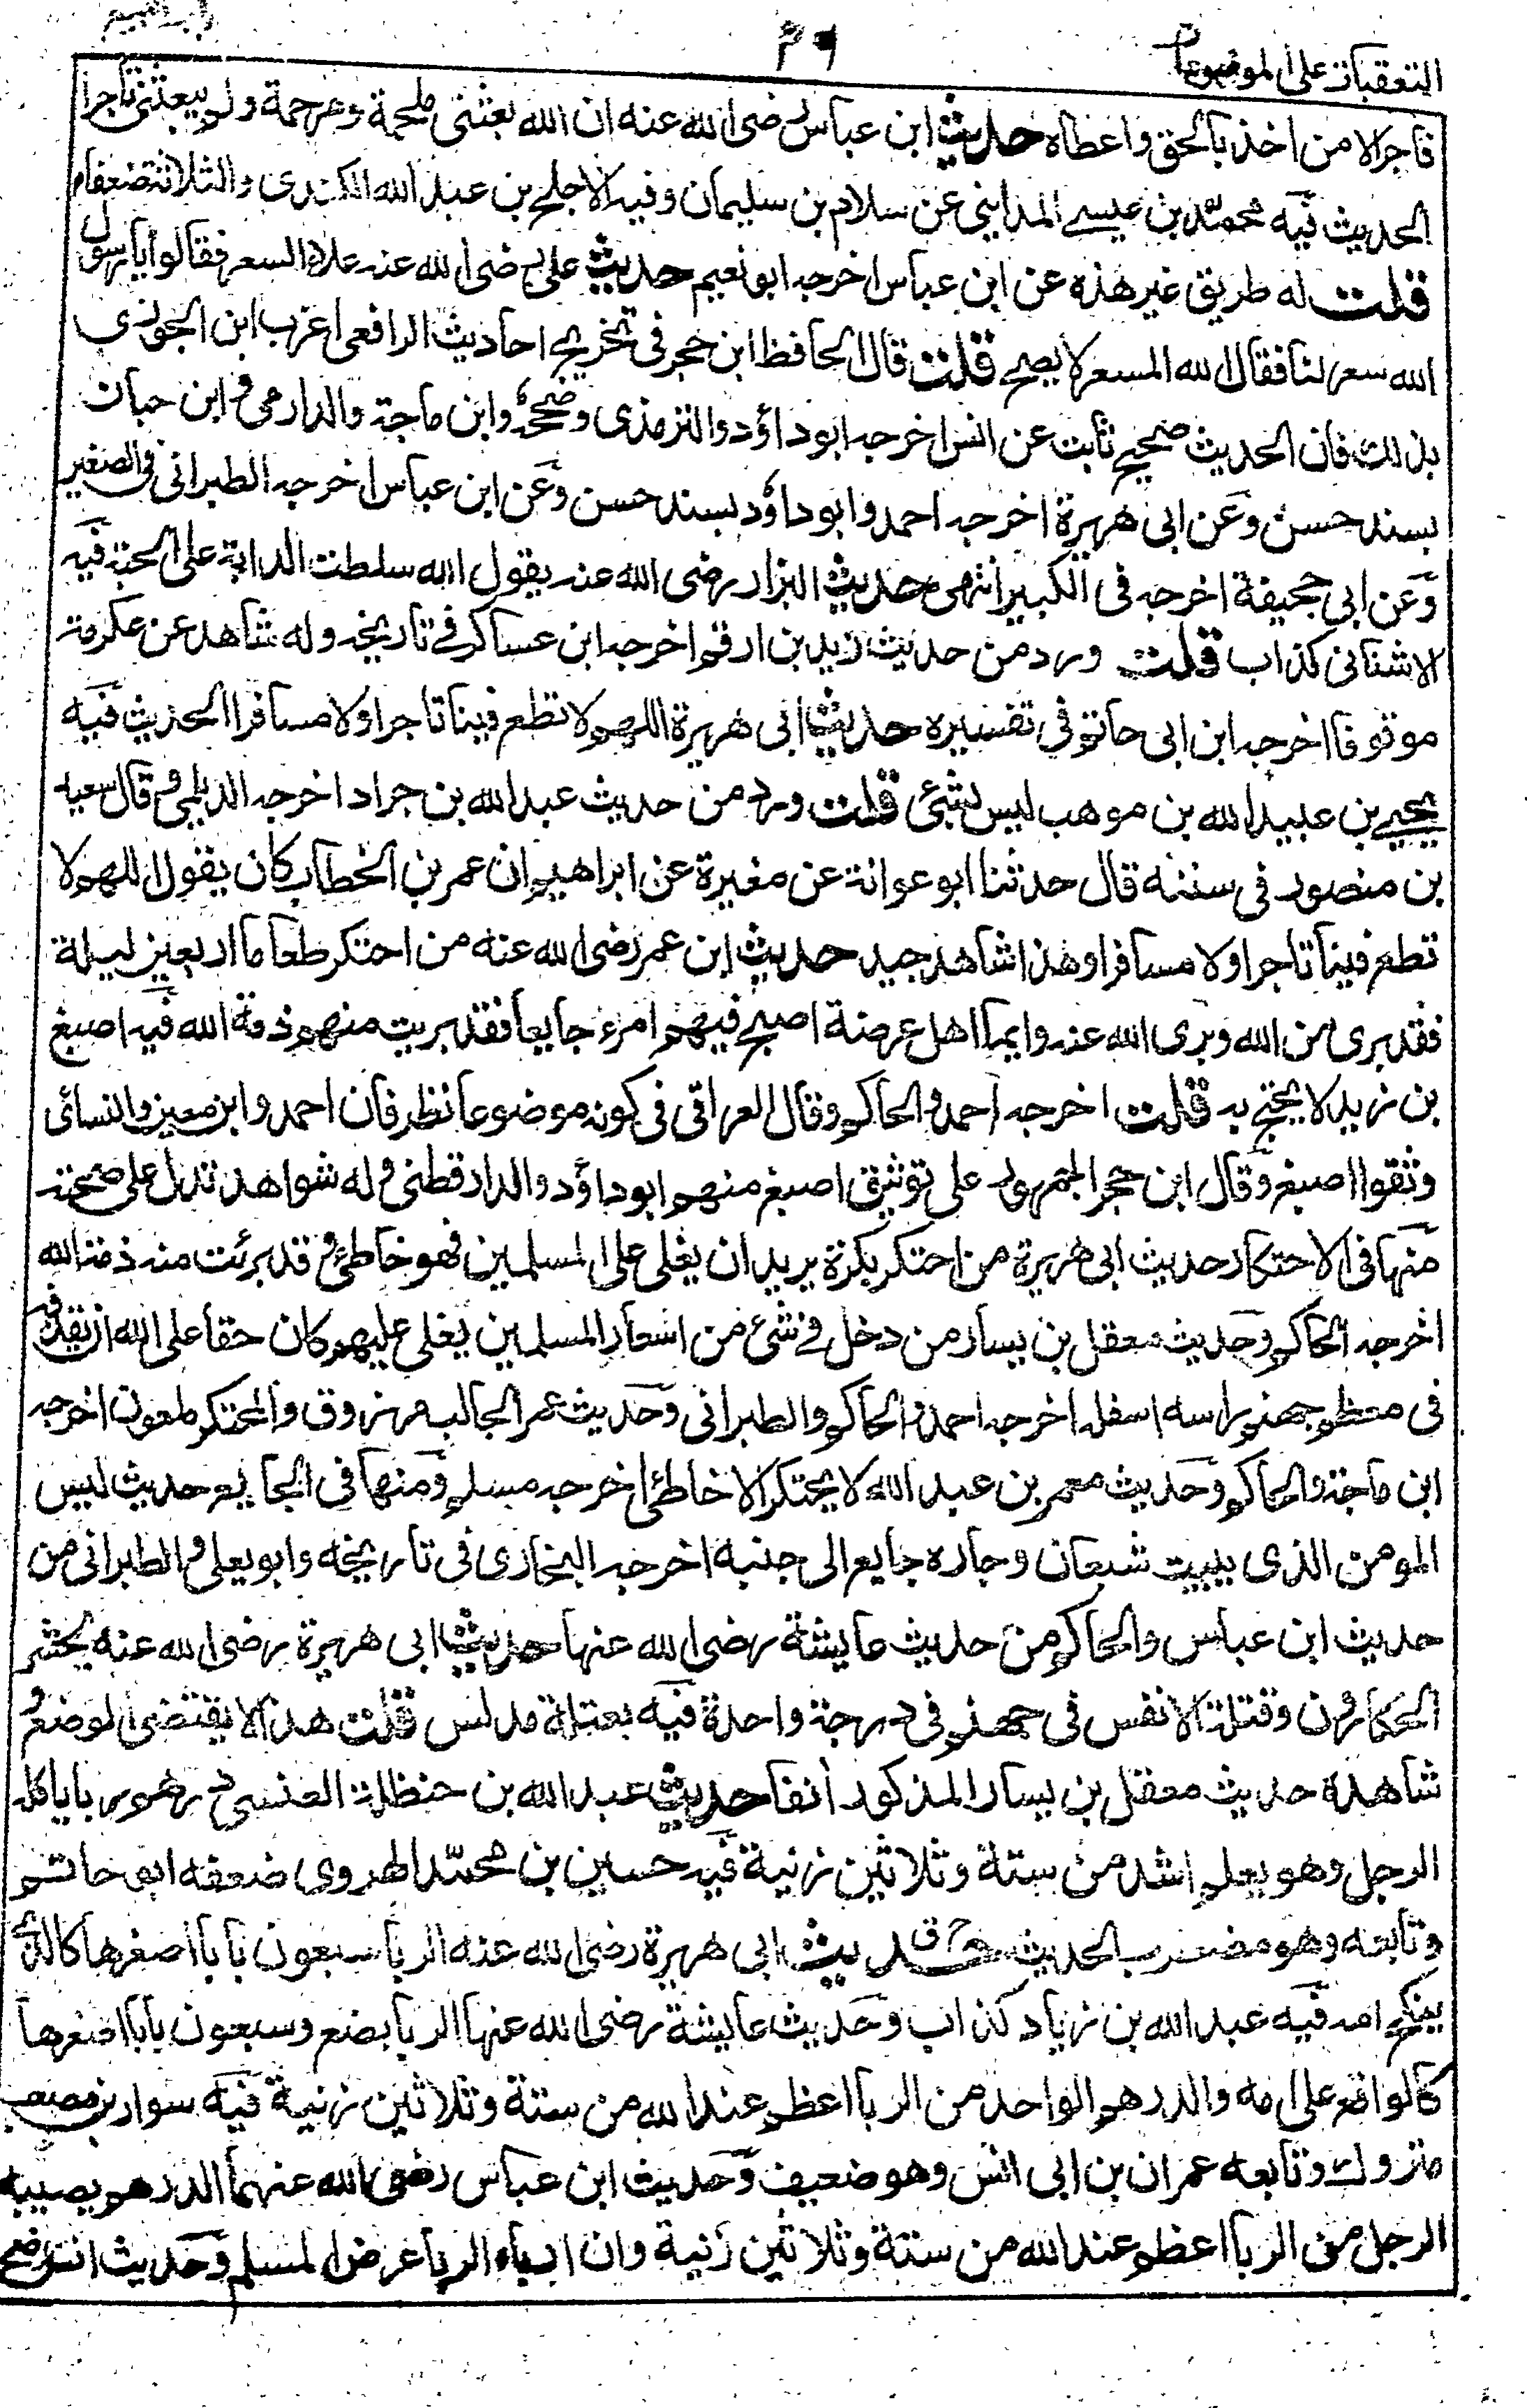 التعقبات على الموضوعات
فاجرا الا من اخذ بالحق واعطاه حديث ابن عباس رضى الله عنه ان الله بعثنى ملحمة ومرحمة ولم يبعثنى تاجرا
الحديث فيه محمد بن عيسى المدايني عن سلام بن سليمان وفيه الاجلح بن عبد الله الكندى والثلاثة ضعفاء
قلت له طريق غير هذه عن ابن عباس اخرجه ابو نعيم حديث على رضى الله عنه غلاء السعر فقالوا يا رسول
الله سعر لنا فقال الله المسعر لا يصح قلت قال الحافظ ابن حجر فى تخريج احاديث الرافعى اغرب ابن الجوزى
بذلك فان الحديث صحيح ثابت عن انس اخرجه ابو داؤد والترمذى وصححه وابن ماجة والدارمى و ابن حبان
بسند حسن وعن ابى هريرة اخرجه احمد وابو داؤد بسند حسن وعن ابن عباس اخرجه الطبرانى فى الصغير
وعن ابى جحيفة اخرجه فى الكبير انتهى حديث البزار رضى الله عنه يقول الله سلطت الدابة على الحبة فيه
الاشنانى كذاب قلت ورد من حديث زيد بن ارقم اخرجه ابن عساكر فى تاريخه وله شاهد عن عكرمة
موقوفا اخرجه ابن ابى حاتم فى تفسيره حديث ابى هريرة اللهم لا تطع فينا تاجرا ولا مسافرا الحديث فيه
يحيى بن عبيد الله بن موهب ليس بشئ قلت ورد من حديث عبد الله بن جراد اخرجه الديلمى وقال سعيد
بن منصور فى سننه قال حدثنا ابو عوانة عن مغيرة عن ابراهيم ان عمر بن الخطاب كان يقول اللهم لا
تطع فينا تاجرا ولا مسافرا وهذا شاهد جيد حديث ابن عمر رضى الله عنه من احتكر طعاما اربعين ليلة
فقد برى من الله وبرى الله عنه وايما اهل عرصة اصبح فيهم امرء جايعا فقد بريت منهم ذمة الله فيه اصبغ
بن زيد لا يحتج به قلت اخرجه احمد والحاكم وقال العراقى فى كونه موضوعا نظر فان احمد وابن معين والنسائى
وثقوا اصبغ وقال ابن حجر الجمهور على توثيق اصبغ منهم ابو داؤد والدارقطنى وله شواهد تدل على صحته
منها فى الاحتكار حديث ابى هريرة من احتكر بكرة يريد ان يغلى على المسلمين فهو خاطئ وقد برئت منه ذمة الله
اخرجه الحاكم وحديث معقل بن يسار من دخل فى شئ من اسعار المسلمين يغلى عليهم كان حقا على الله ان يقذفه
فى معظم جهنم راسه اسفل اخرجه احمد والحاكم والطبرانى وحديث عمر الجالب مرزوق والمحتكر ملعون اخرجه
ابن ماجة والحاكم وحديث معمر بن عبد الله لا يحتكر الا خاطئ اخرجه مسلم ومنها فى الجايع حديث ليس
المومن الذى يبيت شبعان وجاره جايع الى جنبه اخرجه البخارى فى تاريخه وابو يعلى والطبرانى من
حديث ابن عباس والحاكم من حديث عايشة رضى الله عنها حديث ابى هريرة رضى الله عنه يحشر
الحكارون وقتلة الانفس فى جهنم فى درجة واحدة فيه بعتلة مدلس قلت هذا لا يقتضى الموضع و
شاهده حديث معقل بن يسار المذكور انفا حديث عبد الله بن حنظلة درهم ربا ياكله
الرجل وهو يعلم اشد من ستة وثلاثين زنية فيه حسين بن محمد الهروى ضعفه ابو حاتم
وتابعه وهو مضطرب الحديث حديث ابى هريرة رضى الله عنه الربا سبعون بابا اصغرها كالذى
ينكح امه فيه عبد الله بن زياد كذاب وحديث عايشة رضى الله عنها الربا بضع وسبعون بابا اصغرها
كالواقع على امه والدرهم الواحد من الربا اعظم عند الله من ستة وثلاثين زنية فيه سوار بن مصعب
متروك وتابعه عمران بن ابى انس وهو ضعيف وحديث ابن عباس رضى الله عنهما الدرهم يصيبه
الرجل من الربا اعظم عند الله من ستة وثلاثين زنية وان الربا عرض المسلم وحديث انس